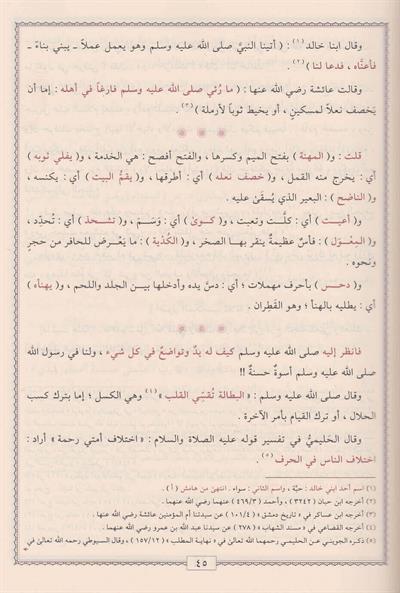 وقال ابنا خالد (١) : ( أتينا النبيَّ صلى الله عليه وسلم وهو يعمل عملاً ـ يبني بناءً ـ
فأعنَّاه ، فدعا لنا ) (٢) .
وقالت عائشة رضي الله عنها : ( ما رُئي صلى الله عليه وسلم فارغاً في أهله : إما أن
يَخصف نعلاً لمسكينٍ ، أو يخيط ثوباً لأرملة ) (٣) .
قلت : و( المهنة ) بفتح الميم وكسرها ، والفتح أفصح : هي الخدمة ، و( يفلي ثوبه )
أي : يخرج منه القمل ، و( خصف نعله ) أي : أطرقها ، و( يقمُّ البيت ) أي : يكنسه ،
و( الناضح ) : البعير الذي يُسقىٰ عليه .
و( أعيت ) أي : كلَّت وتعبت ، و( كوىٰ ) أي : وَسَمَ ، و( تشحذ ) أي : تُحدِّد ،
و( المِعْوَل ) : فأسٌ عظيمةٌ ينقر بها الصخر ، و( الكُدْية ) : ما يَعْرض للحافر من حجرٍ
ونحوه .
و( دحس ) بأحرف مهملات ؛ أي : دسَّ يده وأدخلها بين الجلد واللحم ، و( يهنأه )
أي : يطليه بالهنأ ؛ وهو القَطِران .
فانظر إليه صلى الله عليه وسلم كيف له يدٌ وتواضعٌ في كل شيء ، ولنا في رسول الله
صلى الله عليه وسلم أسوةٌ حسنةٌ !!
وقال صلى الله عليه وسلم : « البطالة تُقسِّي القلب » (٤) وهي الكسل ؛ إما بترك كسب
الحلال ، أو ترك القيام بأمر الآخرة .
وقال الحَليميُّ في تفسير قوله عليه الصلاة والسلام : « اختلاف أمتي رحمة » أراد :
اختلاف الناس في الحرف (٥) .
(١) اسم أحد ابني خالد : حبَّة ، واسم الثاني : سواء . انتهىٰ من هامش ( أ ) .
(٢) أخرجه ابن حبان ( ٣٢٤٢ ) ، وأحمد ( ٤٦٩/٣ ) عنهما رضي الله عنهما .
(٣) أخرجه ابن عساكر في « تاريخ دمشق » ( ١٠١/٤ ) عن سيدتنا أم المؤمنين عائشة رضي الله عنها .
(٤) أخرجه القضاعي في « مسند الشهاب » ( ٢٧٨ ) عن سيدنا عبد الله بن عمرو رضي الله عنهما .
(٥) ذكره الجويني عن الحليمي رحمهما الله تعالىٰ في « نهاية المطلب » ( ١٥٧/١٢ ) ، وقال السيوطي رحمه الله تعالىٰ في
٤٥